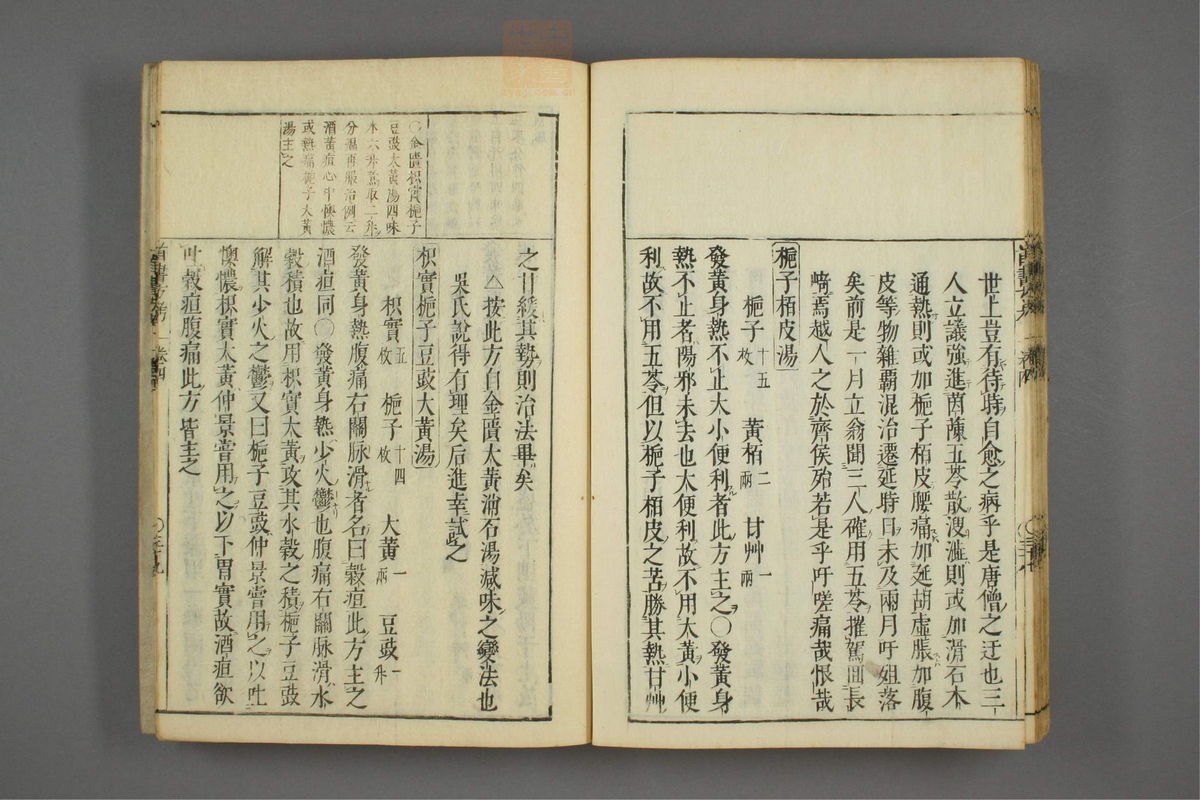 世上豈有待時自愈之病乎是唐僧之迂也三
人立議強進茵蔯五苓散溲澁則或加滑石木
通熱則或加梔子栢皮腰痛加延胡虛脹加腹
皮等物雜覇混治遷延時日未及兩月吁殂落
矣前是一月立翁聞三人確用五苓摧駕回長
嗚焉越人之於齊侯殆若是乎吁嗟痛哉恨哉
梔子栢皮湯
梔子十五枚 黃栢二兩 甘艸一兩
發黃身熱不止大小便利者此方主之○發黃身
熱不止者陽邪未去也大便利故不用大黃小便
利故不用五苓但以梔子栢皮之苦勝其熱甘艸
之甘緩其勢則治法畢矣
△按此方自金匱大黃滑石湯減味之變法也
吳氏說得有理矣后進幸試之
枳實梔子豆豉大黃湯
枳實五枚 梔子十四枚 大黃一兩 豆豉一升
發黃身熱腹痛右關脉滑者名曰穀疸此方主之
酒疸同○發黃身熱少火鬱也腹痛右關脉滑水
穀積也故用枳實大黃攻其水穀之積梔子豆豉
解其少火之鬱又曰梔子豆豉仲景嘗用之以吐
懊憹枳實大黃仲景嘗用之以下胃實故酒疸欲
吐穀疸腹痛此方皆主之
○金匱枳實梔子
豆豉大黃湯四味
水六升煮取二升
分溫再服治例云
酒黃疸心中懊憹
或熱痛梔子大黃
湯主之
卷四